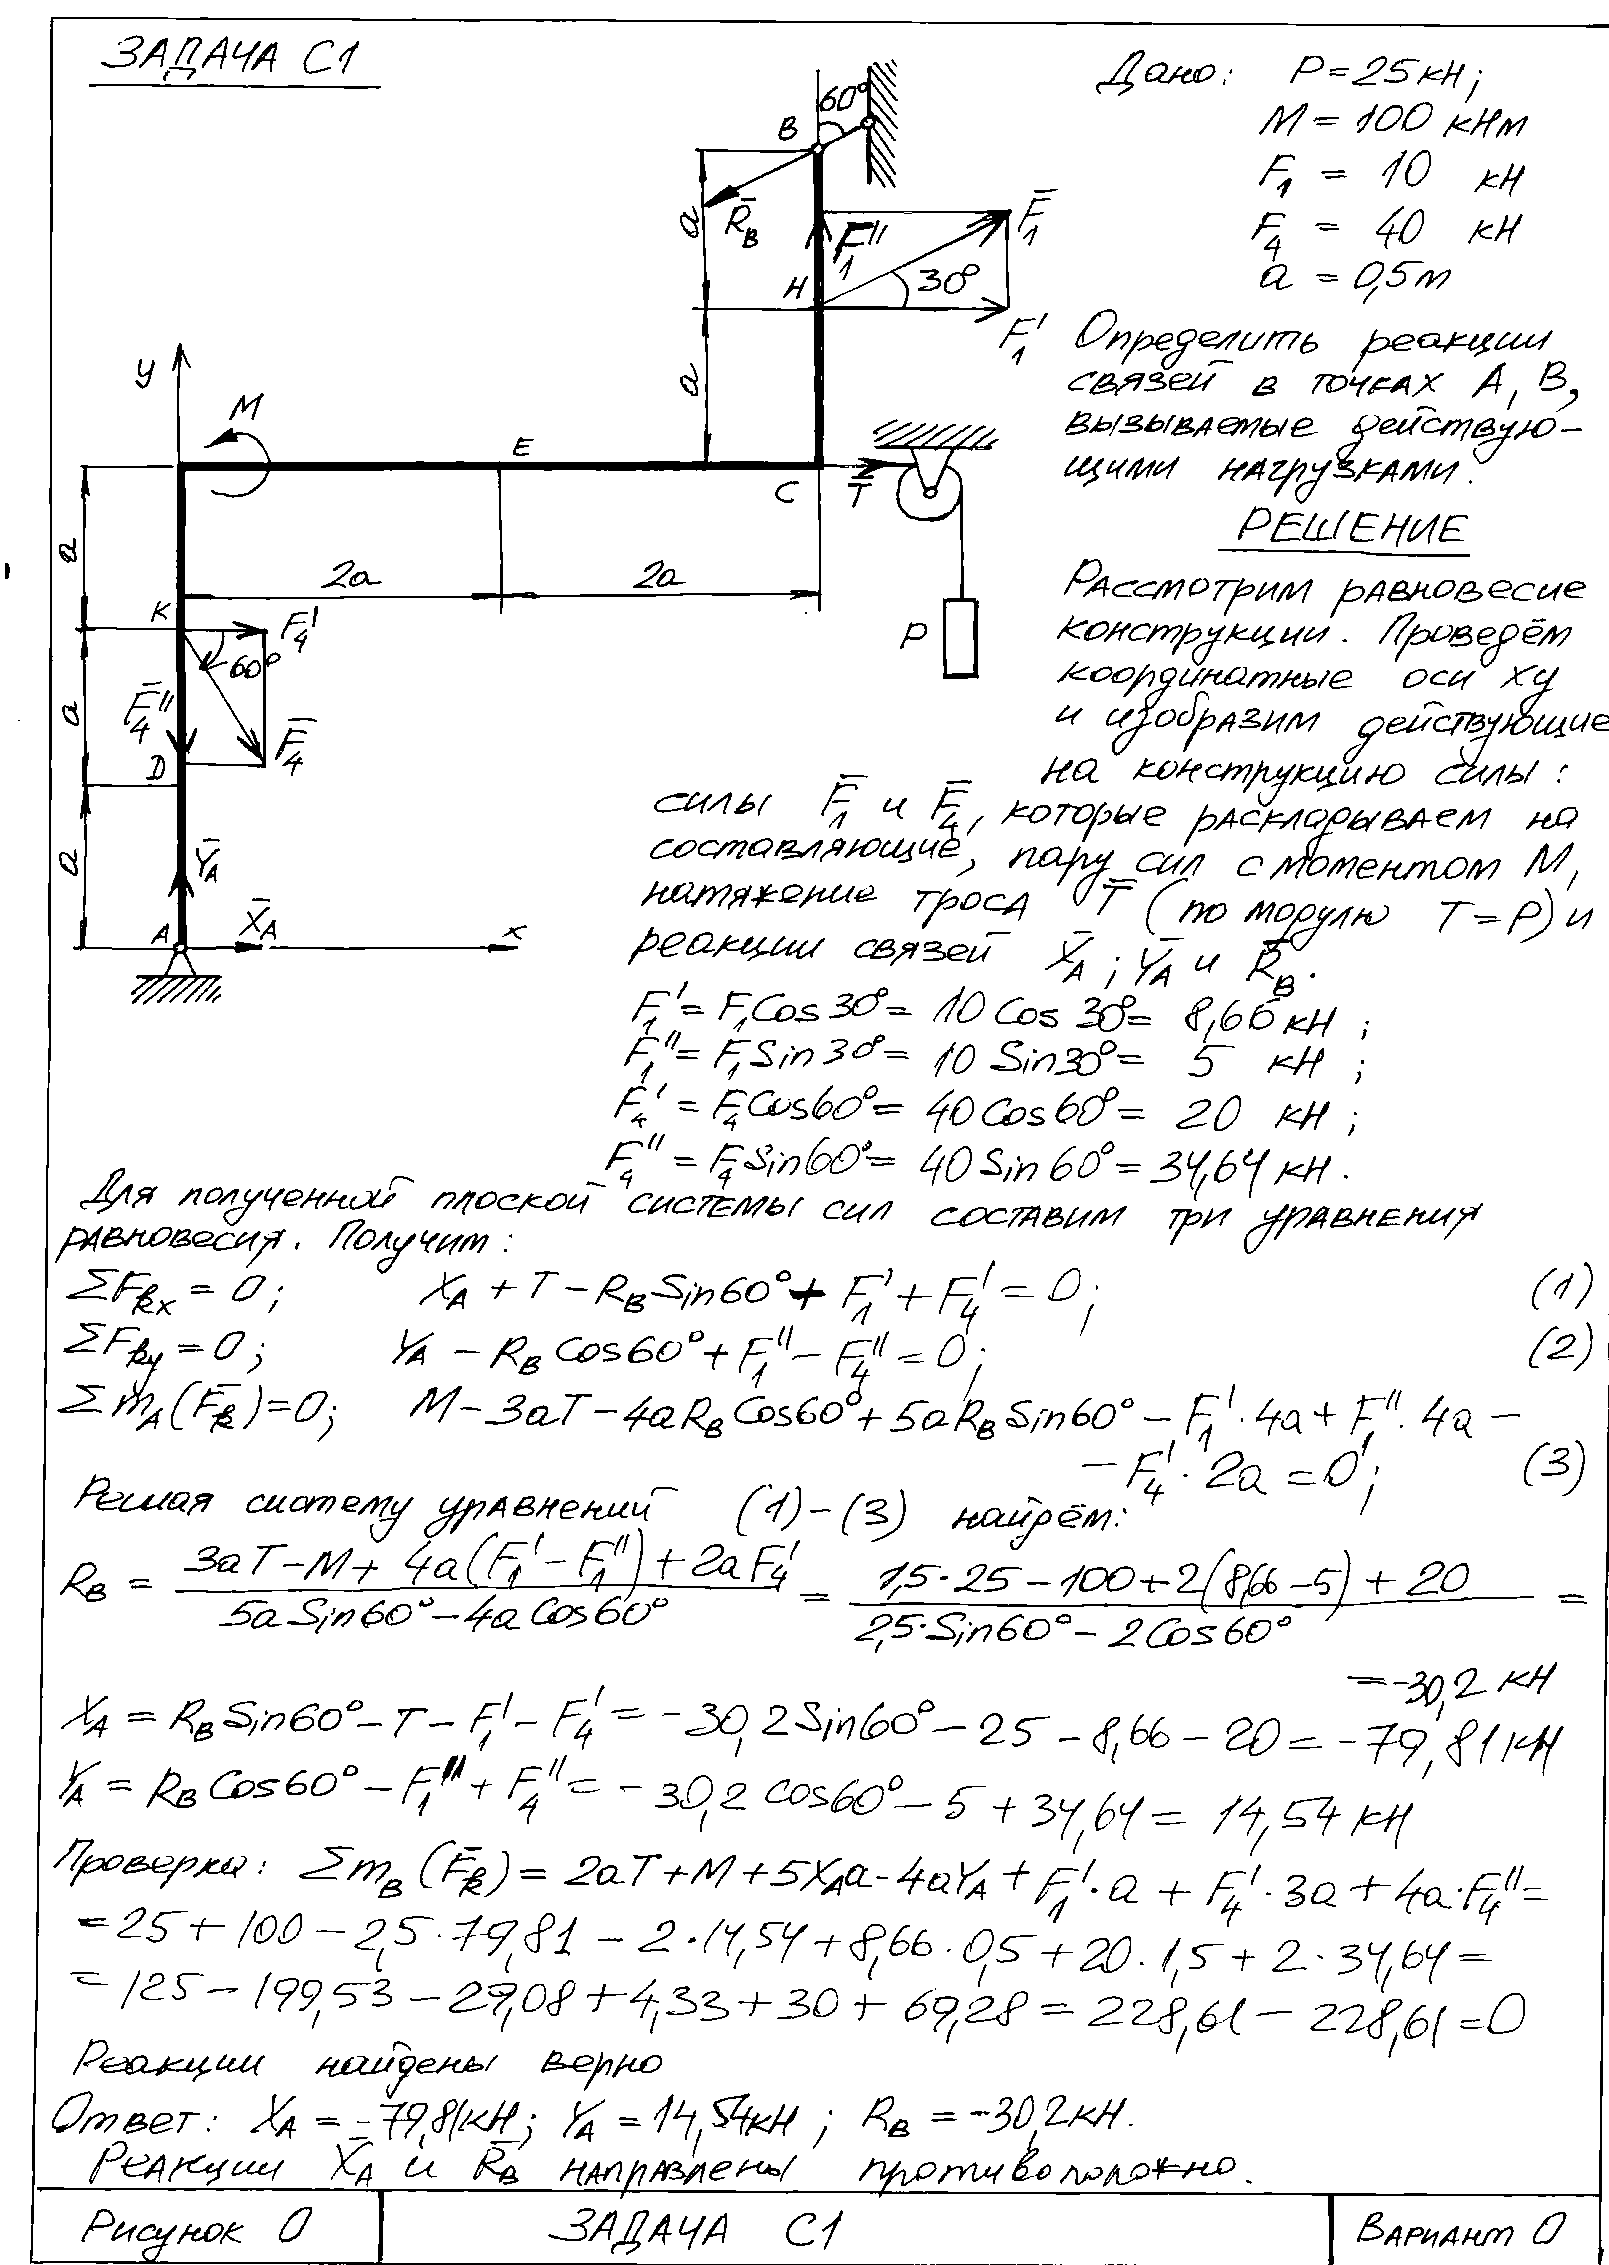 ЗАДАЧА С1
Дано: P = 25 кН;
M = 100 кНм
F₁ = 10 кН
F₄ = 40 кН
a = 0,5 м
Определить реакции
связей в точках A, B,
вызываемые действую-
щими нагрузками.
РЕШЕНИЕ
Рассмотрим равновесие
конструкции. Проведём
координатные оси xy
и изобразим действующие
на конструкцию силы:
силы F̄₁ и F̄₄, которые раскладываем на
составляющие, пару сил с моментом M,
натяжение троса T̄ (по модулю T = P) и
реакции связей X̄_A; Ȳ_A и R̄_B.
60°
B
R̄_B
a
F₁''
F̄₁
H
30°
F₁'
a
y
M
E
C
T̄
a
2a
2a
K
F₄'
60°
P
a
F̄₄''
F̄₄
D
a
Ȳ_A
A
X̄_A
x
F₁' = F₁Cos30° = 10 Cos 30° = 8,66 кН;
F₁'' = F₁Sin30° = 10 Sin30° = 5 кН;
F₄' = F₄Cos60° = 40Cos60° = 20 кН;
F₄'' = F₄Sin60° = 40 Sin 60° = 34,64 кН.
Для полученной плоской системы сил составим три уравнения
равновесия. Получим:
ΣF_kx = 0; X_A + T − R_B Sin60° + F₁' + F₄' = 0; (1)
ΣF_ky = 0; Y_A − R_B Cos60° + F₁'' − F₄'' = 0; (2)
Σm_A(F̄_k) = 0; M − 3aT − 4aR_B Cos60° + 5aR_B Sin60° − F₁'·4a + F₁''·4a −
− F₄'·2a = 0; (3)
Решая систему уравнений (1)-(3) найдём:
R_B = (3aT − M + 4a(F₁' − F₁'') + 2aF₄') / (5a Sin60° − 4a Cos60°) = (1,5·25 − 100 + 2(8,66 − 5) + 20) / (2,5·Sin60° − 2Cos60°) =
= -30,2 кН
X_A = R_B Sin60° − T − F₁' − F₄' = −30,2Sin60° − 25 − 8,66 − 20 = −79,81 кН
Y_A = R_B Cos60° − F₁'' + F₄'' = −30,2 cos60° − 5 + 34,64 = 14,54 кН
Проверка: Σm_B(F̄_k) = 2aT + M + 5X_A a − 4aY_A + F₁'·a + F₄'·3a + 4a·F₄'' =
= 25 + 100 − 2,5·79,81 − 2·14,54 + 8,66·0,5 + 20·1,5 + 2·34,64 =
= 125 − 199,53 − 29,08 + 4,33 + 30 + 69,28 = 228,61 − 228,61 = 0
Реакции найдены верно
Ответ: X_A = −79,81кН; Y_A = 14,54кН; R_B = −30,2кН.
Реакции X̄_A и R̄_B направлены противоположно.
Рисунок 0 ЗАДАЧА С1 Вариант 0